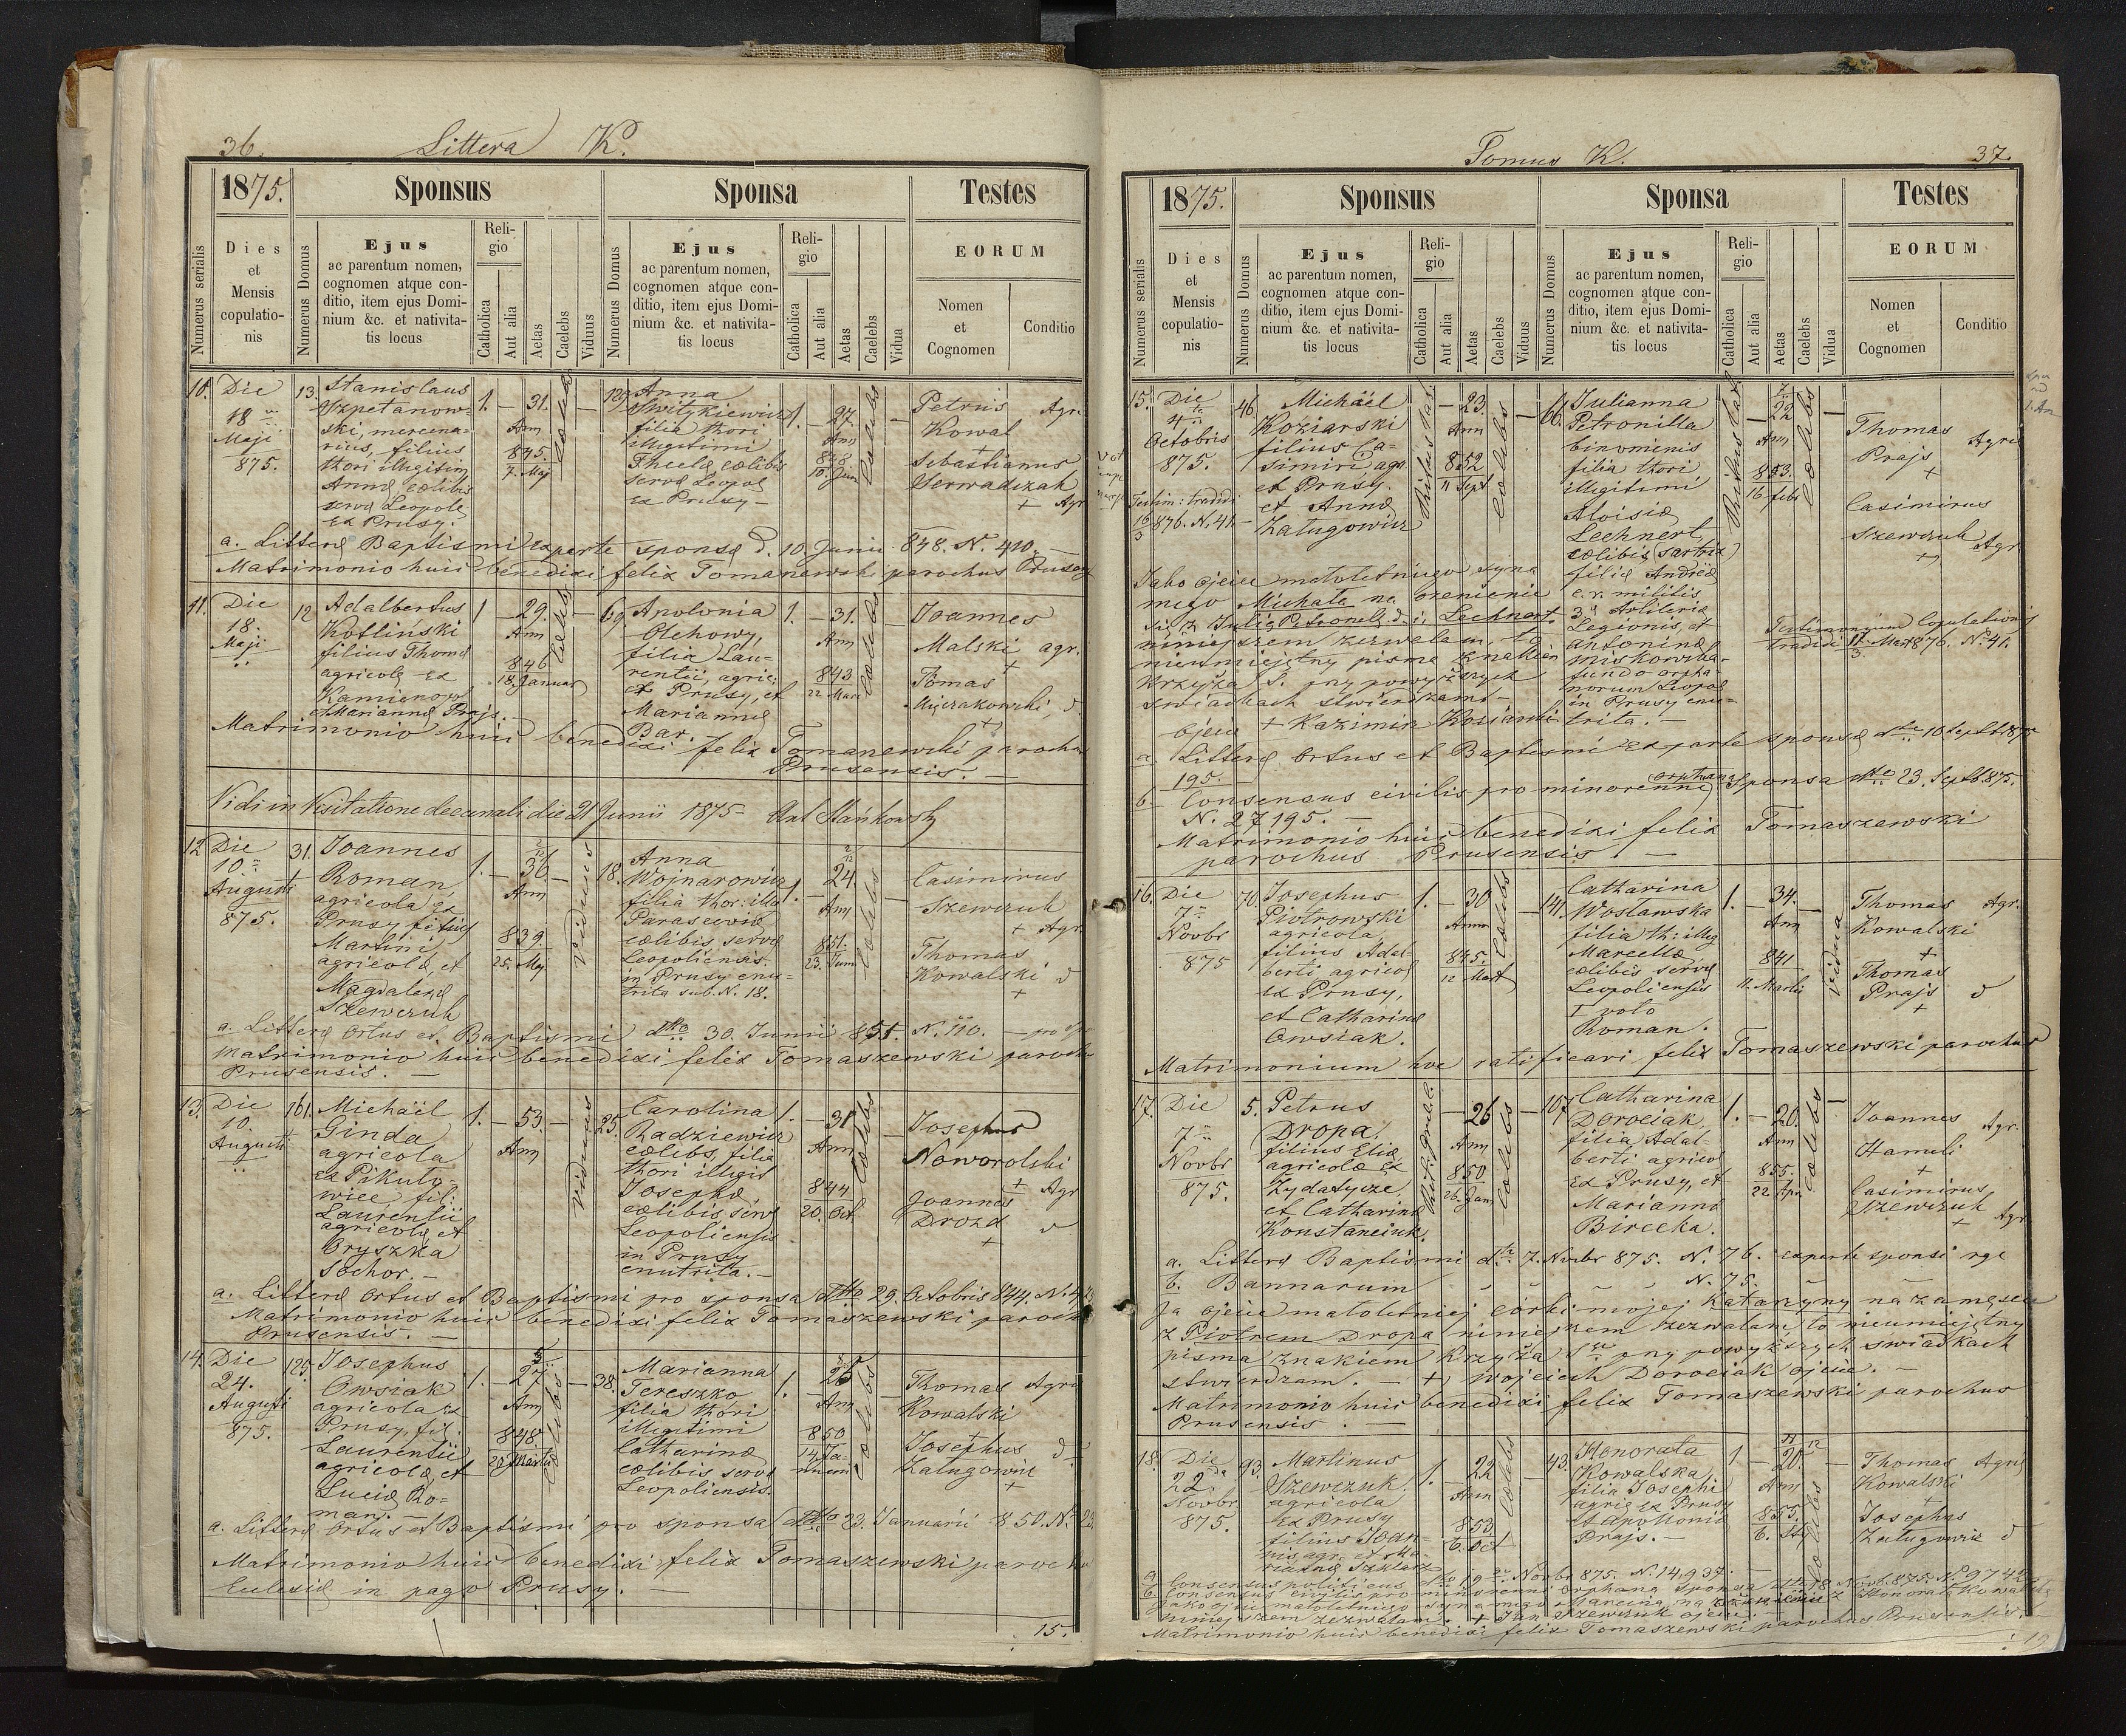 36.
Littera K.
1875.
Sponsus
Sponsa
Testes
Numerus serialis
Dies
et
Mensis
copulatio-
nis
Numerus Domus
Ejus
ac parentum nomen,
cognomen atque con-
ditio, item ejus Domi-
nium &c. et nativita-
tis locus
Reli-
gio
Catholica
Aut alia
Aetas
Caelebs
Viduus
Numerus Domus
Ejus
ac parentum nomen,
cognomen atque con-
ditio, item ejus Domi-
nium &c. et nativita-
tis locus
Reli-
gio
Catholica
Aut alia
Aetas
Caelebs
Vidua
EORUM
Nomen
et
Cognomen
Conditio
10.
Die
18
Maji
875.
13.
Stanislaus
Szpetanow-
ski, mercena-
rius, filius
thori illegitim
Annæ cælibis
servæ Leopole
ex Prusy.
1. — 31.
Ann
845.
7. Maj
Cælebs
Anna
Switykiewicz
filia thori
illegitimi
Theclæ cælibis
servæ Leopol
ex Prusy —
1. — 27.
Ann
848
10 Juni
Cælebs
Petrus
Kowal
+
Agr.
Sebastianus
Serwadczak
+ Agr
a. Litteræ Baptismi exparte sponsæ d. 10. Junii 848. N. 410. —
Matrimonio huic benedixi felix Tomanewski parochus Prusen
11.
Die
18.
Maji
12
Adalbertus
Kotliński
filius Thomæ
agricolæ ex
Kamienopol
et Mariannæ Prajs.
1 — 29.
Ann
846
18. Januar
Cælebs
69
Apolonia
Olchowy,
filia Lau-
rentii, agric.
ex Prusy, et
Mariannæ
Bar. —
1. — 31.
Ann
843
22 Mar
Cælebs
Joannes
Malski agr.
+
Tomas
Mięrakowski
+
Matrimonio huic benedixi felix Tomanewski parochus
Prusensis. —
Vidi in Visitatione decanali die 21 Junii 1875 — Ant Stańkowsky
12
Die
10
Augusti
875.
31.
Joannes
Roman
agricola ex
Prusy filius
Martini
agricolæ, et
Magdalenæ
Szewczuk
1. — 36
Ann
839.
25. Maj
Viduus
18.
Anna
Wojnarowicz
filia thor: ille
Parascewiæ
cælibis servæ
Leopoliensis
in Prusy enu-
trita sub. N. 18.
1. — 24.
Ann
851.
23. Juni
Cælebs
Casimirus
Szewczuk
+ Agr
Thomas
Kowalski
+
a. Litteræ Ortus et Baptismi dto 30. Junii 851. N. 110. —
Matrimonio huic benedixi felix Tomaszewski parochus
Prusensis. —
13.
Die
10.
Augusti
161.
Michäel
Ginda
agricola
ex Pikuło-
wice fil:
Laurentii
agricolæ et
Oryszka
Sochor. —
1. — 53. —
Ann
Viduus
25.
Carolina
Radziewicz
cælibs, filia
thori illegit
Josephæ
cælibis, servæ
Leopoliensis
in Prusy
enutrita. —
1. — 31
Ann
844
20. Oct.
Cælebs
Josephus
Noworolski
+ Agr
Joannes
Drozd
+
a. Litteræ Ortus et Baptismi pro sponsa dtto 29. Octobris 844.
Matrimonio huic benedixi felix Tomaszewski paroch
Prusensis. —
14.
Die
24.
Augusti
875.
125.
Josephus
Owsiak
agricola ex
Prusy, fil.
Laurentii
agricolæ et
Luciæ Ro-
man. —
1. — 27
Ann
848
20 Martii
Cælebs
38.
Marianna
Tereszko
filia thori
illegitimi
Catharinæ
cælibis servæ
Leopoliensis.
1. — 25
Ann
850
14 Ja-
nuarii
Cælebs
Thomas Agri
Kowalski
+
Josephus
Załugowicz
+
a. Litteræ Ortus et Baptismi pro sponsa dtto 23. Januarii 850. N. 23.
Matrimonio huic benedixi felix Tomaszewski parochu
Ecclesiæ in pago Prusy. —
15.
Tomus K.
37.
1875.
Sponsus
Sponsa
Testes
Numerus serialis
Dies
et
Mensis
copulatio-
nis
Numerus Domus
Ejus
ac parentum nomen,
cognomen atque con-
ditio, item ejus Domi-
nium &c. et nativita-
tis locus
Reli-
gio
Catholica
Aut alia
Aetas
Caelebs
Viduus
Numerus Domus
Ejus
ac parentum nomen,
cognomen atque con-
ditio, item ejus Domi-
nium &c. et nativita-
tis locus
Reli-
gio
Catholica
Aut alia
Aetas
Caelebs
Vidua
EORUM
Nomen
et
Cognomen
Conditio
15.
Die
4
Octobris
875.
Testim: tradidi
16/3 876. N. 41.
46
Michäel
Koziarski
filius Ca-
simiri agr.
ex Prusy.
et Annæ
Załugowicz
Ritus lat.
— 23.
Ann
852
11 Sept
Cælebs
66.
Julianna
Petronilla
binominis
filia thori
illegitimi
Aloisiæ
Lechnert,
cælibis (sartrix)
filiæ Andreæ
c. r. militis
3 Artileriæ
Legionis, et
Antoninæ
Miskowska
fundo orpha-
norum Leopol
in Prusy enu-
trita. —
Ritus lat.
— 22
Ann
853.
16 feb
Cælebs
Thomas
Prajs
+
Agric
Casimirus
Szewczuk
+ Agr
Testimonium Copulationis
tradidi 17/3 Mart 876. N. 41.
Jako ojciec małoletniego syna
mego Michała na ożenienie
się z Julią Petronelą d. i. Lechnert
niniejszem zezwalam, to
nieumiejętny pisma znakiem
krzyża S. przy powyższych
świadkach stwierdzam —
Ojciec + Kazimirz Koziarski
a. Litteræ Ortus et Baptismi ex parte sponsæ dto 10 Septb 1875
195.
b. Consensus civilis pro minorenni (orphana) Sponsa dtto 23. Septb. 875.
N. 27195. —
Matrimonio huic benedixi felix Tomaszewski
parochus Prusensis. —
16.
Die
7
Novbr
875
70.
Josephus
Piotrowski
agricola
filius Adal-
berti agricol
ex Prusy,
et Catharinæ
Owsiak.
1. — 30
Ann
845.
12 Mart
Cælebs
141.
Catharina
Wosławska
filia th: illeg
Marcellæ
cælibis servæ
Leopoliensis
I voto
Roman.
1. — 34.
Ann
841
11. Martii
Vidua
Thomas Agr.
Kowalski
+
Thomas
Prajs
+
Matrimonium hoc ratificavi felix Tomaszewski parochus
17.
Die
7
Novbr
875.
5.
Petrus
Dropa,
filius Eliæ
agricolæ ex
Zydatycze,
et Catharinæ
Konstanciuk.
Rit. græc.
— 26
Ann
850
26. Jan
Cælebs
107
Catharina
Dorociak,
filia Adal-
berti agricol
ex Prusy, et
Mariannæ
Birecka.
1. — 20.
Ann
855.
22 Apr
Cælebs
Joannes Agr.
Hamuli
+
Casimirus
Szewczuk
+ Agr
a. Litteræ Baptismi dto 7. Novbr 875. N. 76. exparte sponsi
b. Bannarum " " " N. 75. "
Ja ojciec małoletniej córki mojej Katarzyny na zamęście
z Piotrem Dropa niniejszem zezwalam to nieumiejętny
pisma znakiem Krzyża S przy powyższych świadkach
stwierdzam. — + Wojciech Dorociak ojciec. —
Matrimonio huic benedixi felix Tomaszewski parochus
Prusensis. —
18.
Die
22
Novbr
875.
93.
Martinus
Szewczuk
agricola
ex Prusy
filius Joan-
nis agr. et Ma-
riannæ Szklarz
1. — 22
Ann
853
6. Oct
Cælebs
43.
Honorata
Kowalska,
filia Josephi
agric ex Prusy
et Apolloniæ
Prajs. —
1 — 20
Ann
855.
Cælebs
Thomas Agric
Kowalski
+
Josephus
Załugowicz
a. Consensus politicus dto 19 Novbr 875. N. 14,937.
b. Consensus civilis pro minorenni orphana Sponsa dtto 18 Novb. 875.
Jako ojciec małoletniego syna mego Marcina, na ożenienie z Honoratą Kowalską
niniejszem zezwalam. + Jan Szewczuk ojciec. —
Matrimonio huic benedixi felix Tomaszewski parochus Prusensis.